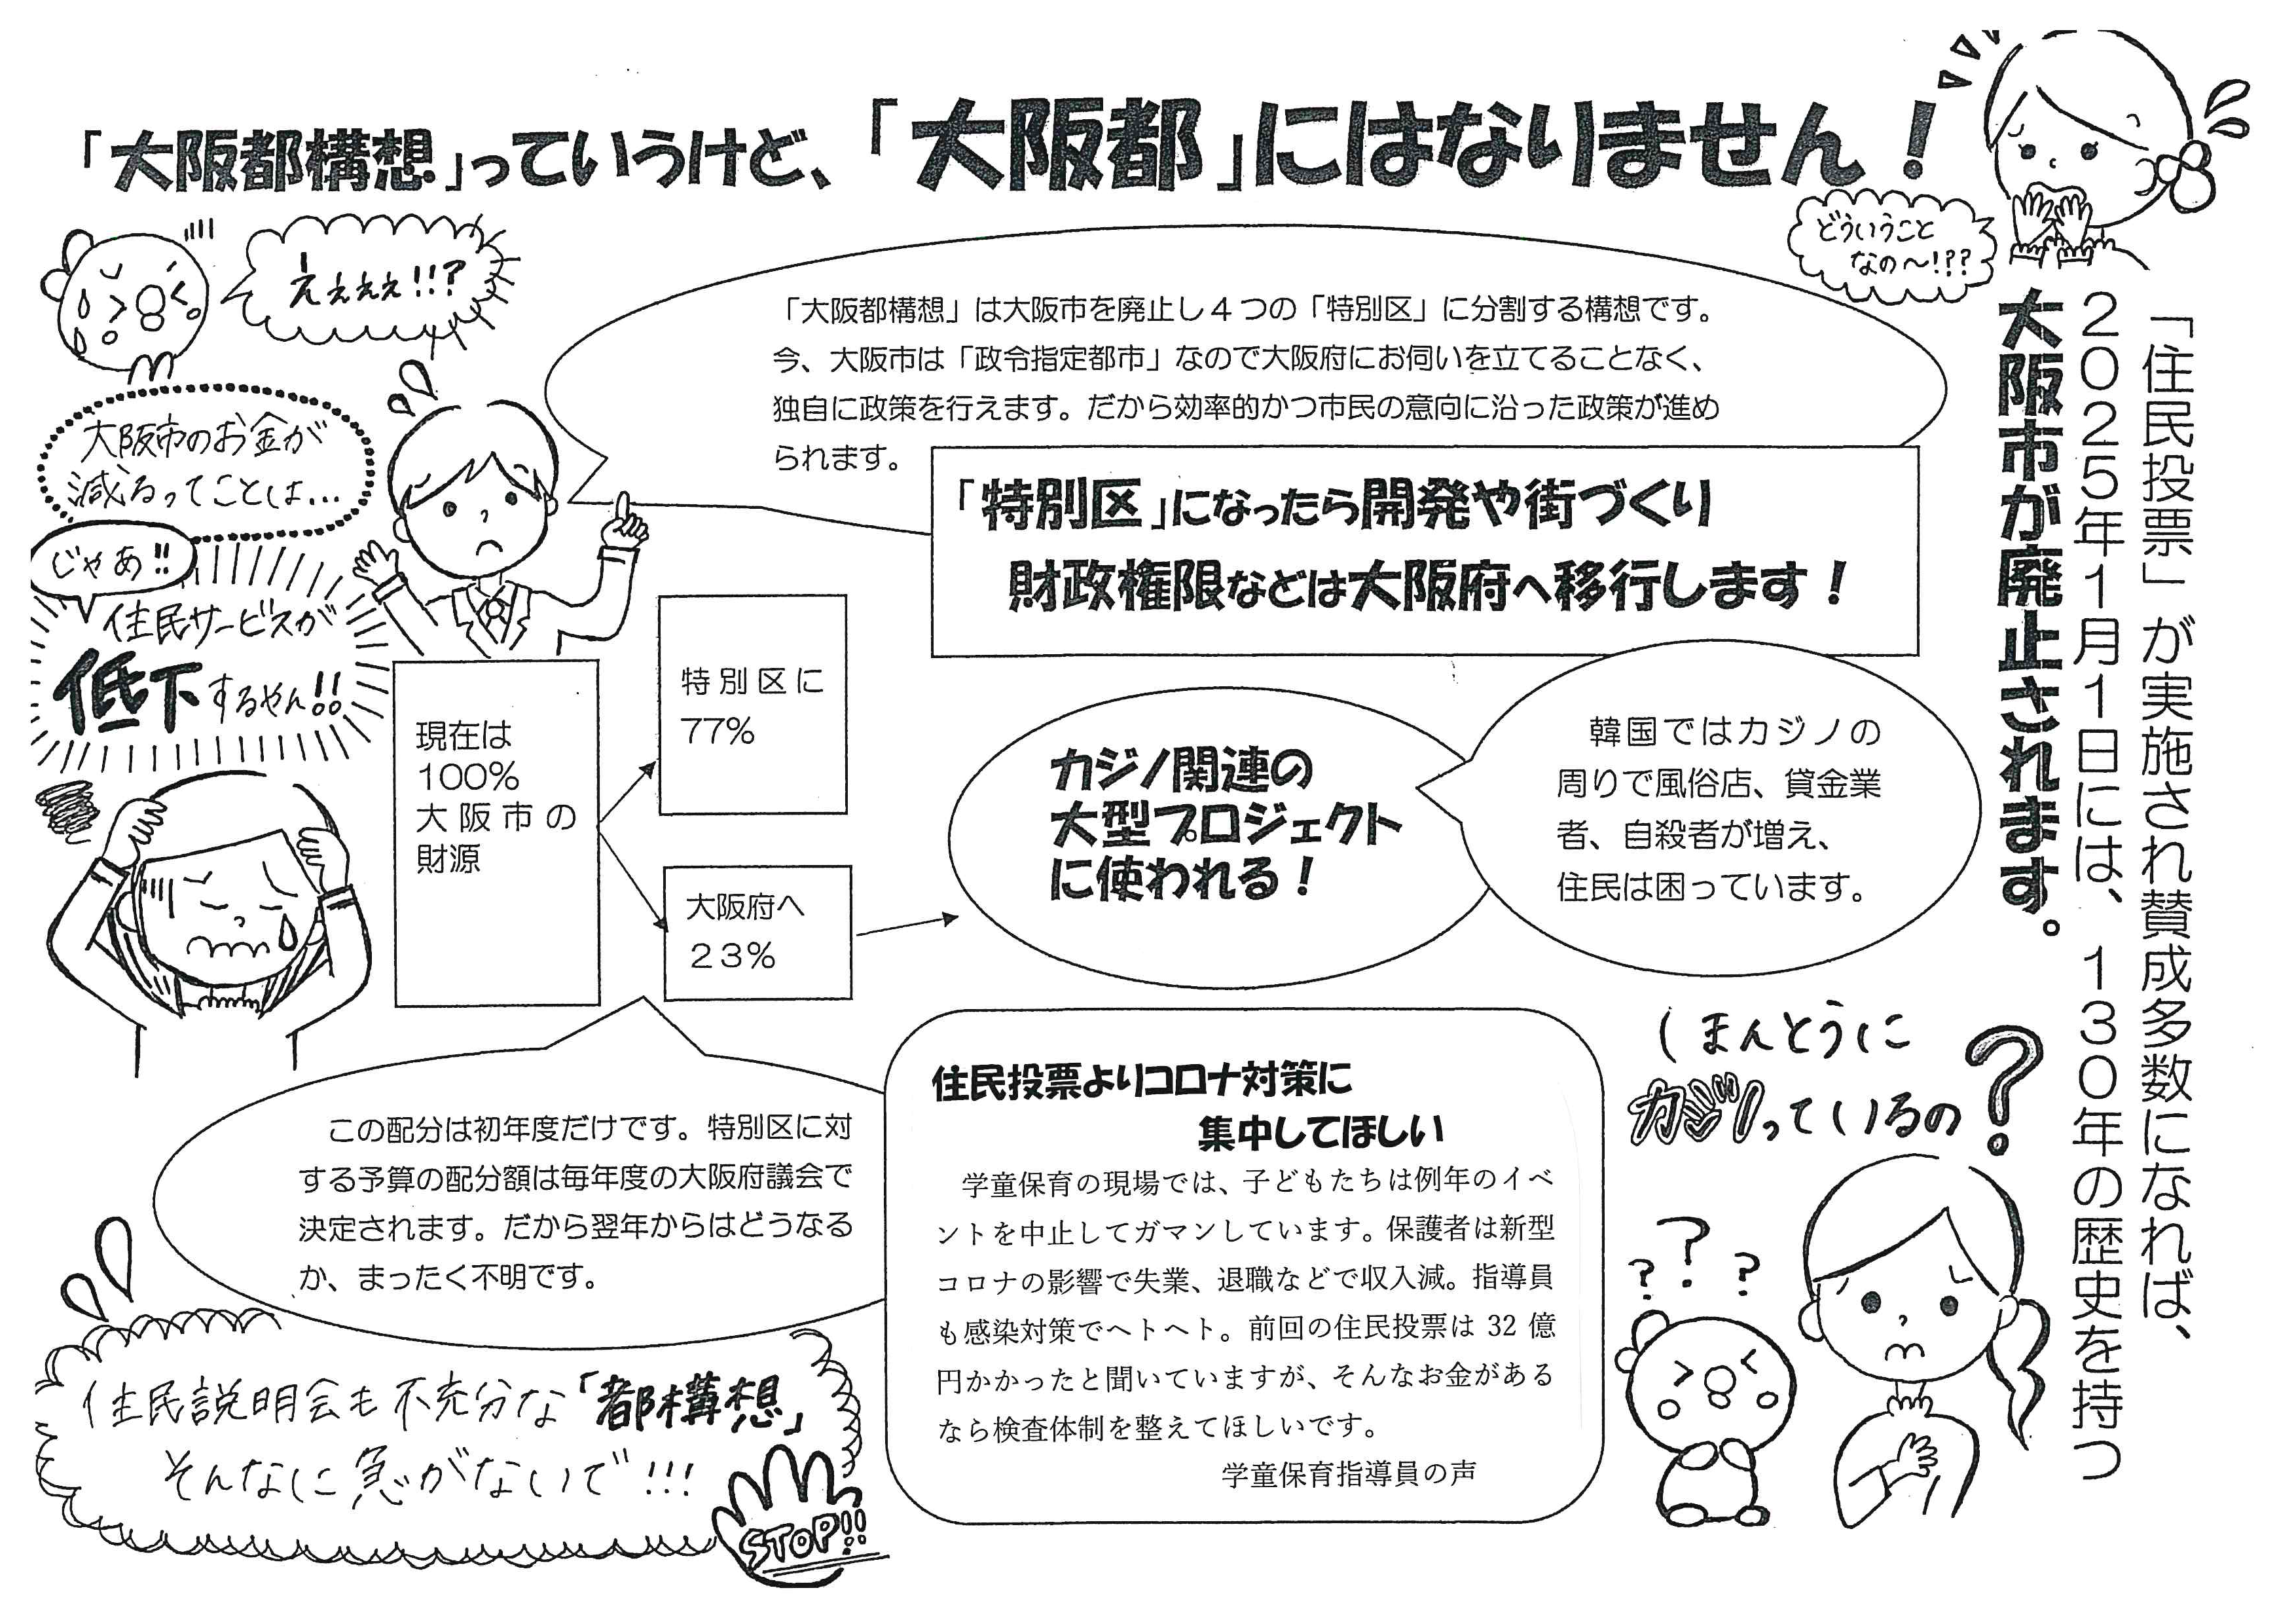 「大阪都構想」っていうけど、「大阪都」にはなりません！
どういうこと
なの〜!??
「住民投票」が実施され賛成多数になれば、
２０２５年１月１日には、１３０年の歴史を持つ
大阪市が廃止されます。
ええええ!!?
「大阪都構想」は大阪市を廃止し４つの「特別区」に分割する構想です。
今、大阪市は「政令指定都市」なので大阪府にお伺いを立てることなく、
独自に政策を行えます。だから効率的かつ市民の意向に沿った政策が進め
られます。
「特別区」になったら開発や街づくり
財政権限などは大阪府へ移行します！
大阪市のお金が
減るってことは…
じゃあ!!
住民サービスが
低下するやん!!
現在は
100%
大阪市の
財源
特別区に
77%
大阪府へ
２３%
カジノ関連の
大型プロジェクト
に使われる！
韓国ではカジノの
周りで風俗店、貸金業
者、自殺者が増え、
住民は困っています。
この配分は初年度だけです。特別区に対
する予算の配分額は毎年度の大阪府議会で
決定されます。だから翌年からはどうなる
か、まったく不明です。
住民投票よりコロナ対策に
集中してほしい
学童保育の現場では、子どもたちは例年のイベ
ントを中止してガマンしています。保護者は新型
コロナの影響で失業、退職などで収入減。指導員
も感染対策でヘトヘト。前回の住民投票は 32 億
円かかったと聞いていますが、そんなお金がある
なら検査体制を整えてほしいです。
学童保育指導員の声
ほんとうに
カジノっているの?
? ? ?
住民説明会も不充分な「都構想」
そんなに急がないで!!!
STOP!!